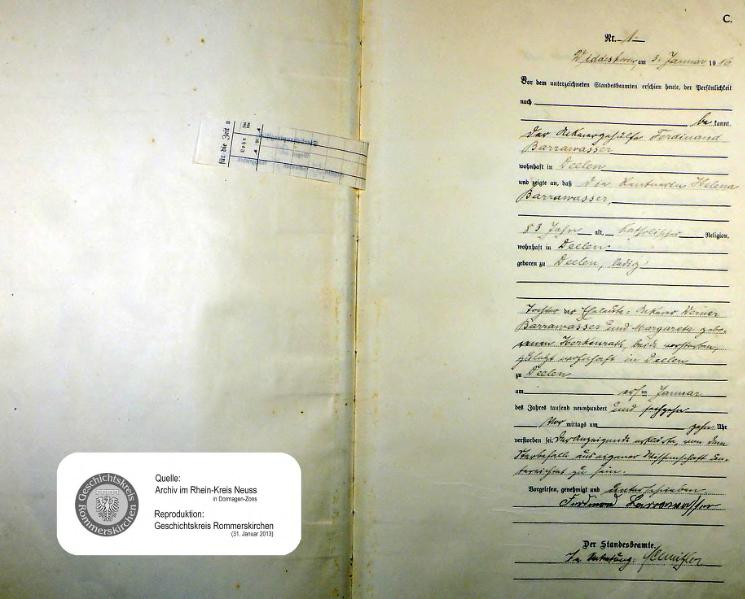 C.
Nr. 1
am 3. Januar 1916
Vor dem unterzeichneten Standesbeamten erschien heute, der Persönlichkeit
nach
be kannt,
der Ackergehülfe Ferdinand
Barrawasser
wohnhaft in Deelen
und zeigte an, daß die Rentnerin Helena
Barrawasser,
83 Jahre alt, katholischer Religion,
wohnhaft in Deelen
geboren zu Deelen, ledig
Tochter der Eheleute: Ackerer
Barrawasser und Margareta gebo-
renen beide verstorben,
zuletzt wohnhaft in Deelen
zu Deelen
am Januar
des Jahres tausend neunhundert und sechzehn
Vor mittags um zehn Uhr
verstorben sei. Der Anzeigende erklärte, von dem
Sterbefalle aus eigener Wissenschaft un-
terrichtet zu sein.
Vorgelesen, genehmigt und unterschrieben
Ferdinand Barrawasser
Der Standesbeamte.
In Vertretung:
für die Zeit v
Geschichtskreis
Rommerskirchen
Quelle:
Archiv im Rhein-Kreis Neuss
in Dormagen-Zons
Reproduktion:
Geschichtskreis Rommerskirchen
(31. Januar 2013)